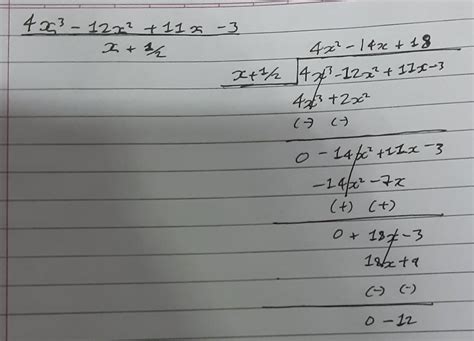 4x³ - 12x² + 11x - 3
x + 1/2
4x² - 14x + 18
x + 1/2 4x³ - 12x² + 11x - 3
4x³ + 2x²
(-) (-)
0 - 14x² + 11x - 3
-14x² - 7x
(+) (+)
0 + 18x - 3
18x + 9
(-) (-)
0 - 12